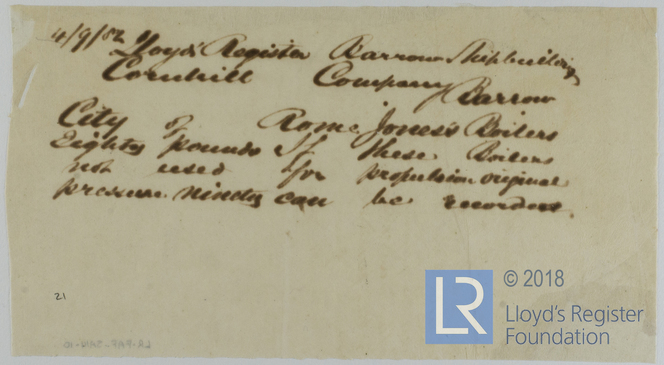 4/9/82
Lloyds Register Barrow Shipbuilding
Cornhill Company Barrow
City of Rome Jones's Boilers
Eighty pounds If these Boilers
not used for propulsion original
pressure ninety can be recorded
21
LR
© 2018
Lloyd's Register
Foundation